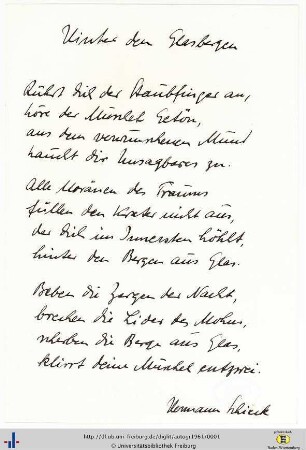 Hinter den Glasbergen
Rührt dich der Staubfinger an,
höre der Muschel Getön,
aus dem verwunschenen Mund
haucht dir Unsagbares zu.
Alle Moränen des Traums
füllen den Krater nicht aus,
der dich im Innersten höhlt,
hinter den Bergen aus Glas.
Beben die Zargen der Nacht,
brechen die Lider des Mohns,
scherben die Berge aus Glas,
klirrt deine Muschel entzwei.
Hermann
http://dl.ub.uni-freiburg.de/diglit/autogr1961r0001
© Universitätsbibliothek Freiburg
Baden-Württemberg